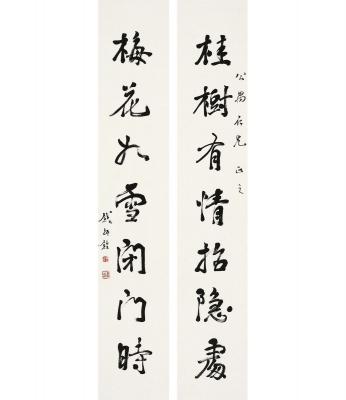 桂樹有情招隱處
公禺仁兄正之
梅花如雪閉門時